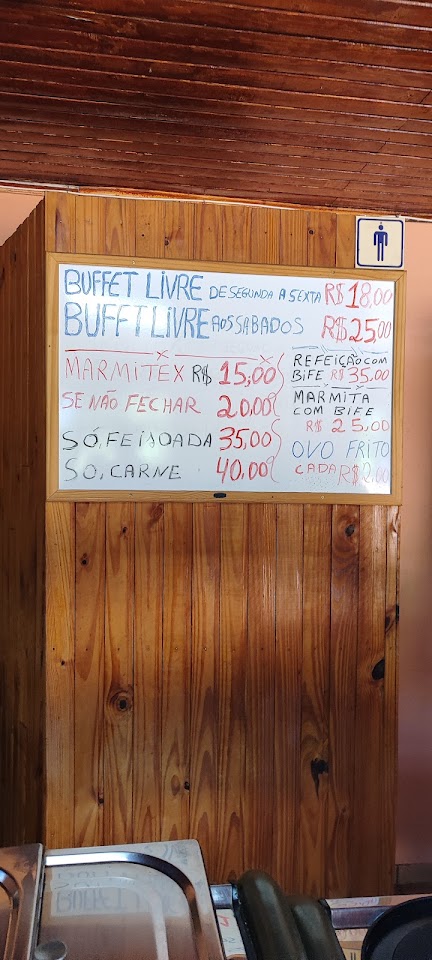 BUFFET LIVRE DE SEGUNDA A SEXTA R$ 18,00
BUFFT LIVRE AOS SABADOS R$ 25,00
MARMITEX R$ 15,00
SE NÃO FECHAR 20,00
SÓ, FEIJOADA 35,00
SO, CARNE 40,00
REFEIÇÃO COM
BIFE R$ 35,00
MARMITA
COM BIFE
R$ 25,00
OVO FRITO
CADA R$ 2,00